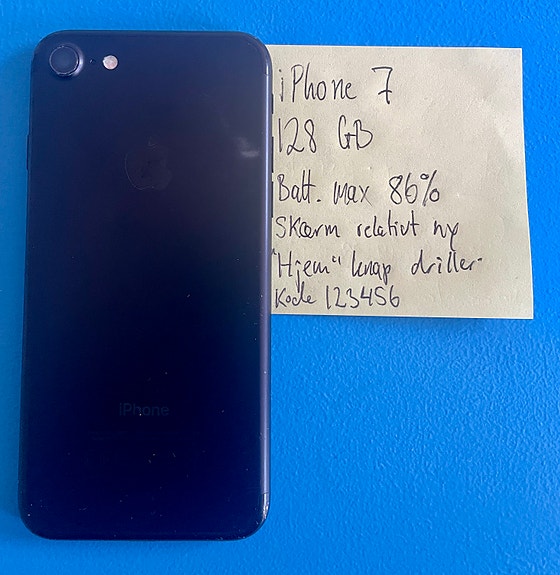 iPhone 7
128 GB
Batt. max 86%
Skærm relativt ny
"Hjem" knap driller
Kode 123456
iPhone